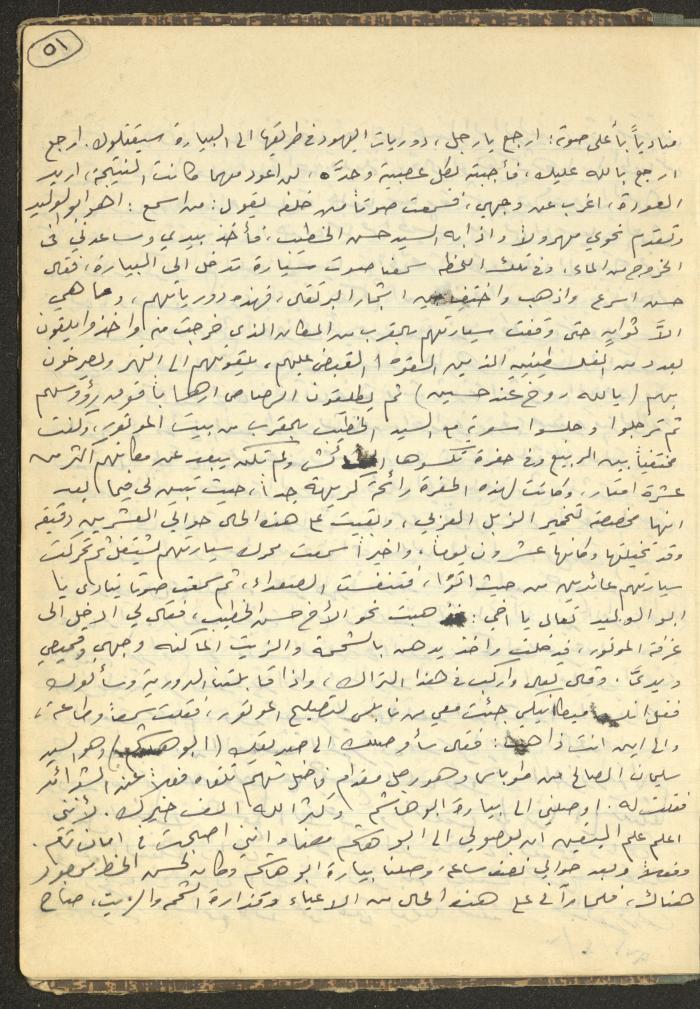 ٥١
منادياً بأعلى صوته: ارجع يا رجل، دوريات اليهود في طريقها الى البيارة سيقتلوك. ارجع
ارجع بالله عليك، فأجبته بكل عصبية وحدّه، لن اعود مهما كانت النتيجة، اريد
العودة، اغرب عن وجهي، فسمعت صوتاً من خلفه يقول: من اسمع: اهو ابو الوليد
وتقدم نحوي مهرولاً واذا به السيد حسن الخطيب، فأخذ بيدي وساعدني في
الخروج من الماء، وفي تلك اللحظه سمعنا صوت سيارة تدخل الى البيارة، فقال
حسن اسرع واذهب واختفي بين اشجار البرتقال، فهذه دورياتهم، وما هي
الاّ ثوانٍ حتى وقفت سيارتهم بالقرب من المكان الذي خرجت منه واخذوا يلقون
بعدد من الفلسطينيين الذين القوا القبض عليهم، يلقونهم الى النهر ويصرخون
بهم (يا الله روح عند حسين) ثم يطلقون الرصاص ارهاباً فوق رؤوسهم
ثم ترجلوا وجلسوا سوية مع السيد الخطيب بالقرب من بيت الموتور، وكنت
مختفياً بين الربيع وفي حفرة تكسوها ولم تكن يبعد عن مكانهم اكثر من
عشرة امتار، وكانت لهذه الحفرة رائحة كريهة جداً، حيث تبين لي فيما بعد
انها مخصصة لتخمير الزبل العربي، وبقيت على هذه الحال حوالي العشرين دقيقه
وقد تخيلتها وكأنها عشرون يوماً، واخيراً سمعت محرك سيارتهم يشتغل ثم تحركت
سيارتهم عائدين من حيث اتوا، فتنفست الصعداء، ثم سمعت صوتا ينادي يا
ابو الوليد تعال يا اخي: فذهبت نحو الأخ حسن الخطيب، فقال لي ادخل الى
غرفة الموتور، فدخلت واخذ يدهن بالشحمة والزيت الماكنه وجهي وقميصي
ويديّ. وقال تعال واركب في هذا التراك، واذا قابلتنا الدورية وسألوك
فقل انك ميكانيكي جئت معي من نابلس لتصليح الموتور، فقلت سمعاً وطاعة،
والى اين انت ذاهب: فقال سأوصلك الى صديقك (ابو هاشم) وهو السيد
سليمان الصالح من طوباس وهو رجل مقدام فاضل شهم تلقاه فعلاً عند الشدائد
فقلت له. اوصلني الى بيارة ابو هاشم وكثر الله الف خيرك. لأنني
اعلم علم اليقين ان بوصولي الى ابو هاشم معناه انني اصبحت في امان تام.
وفعلاً وبعد حوالي نصف ساعة وصلنا بيارة ابو هاشم وكان لحسن الحظ موجود
هناك، فلما رآني على هذه الحال من الاعياء وقذارة الشحم والزيت، صاح